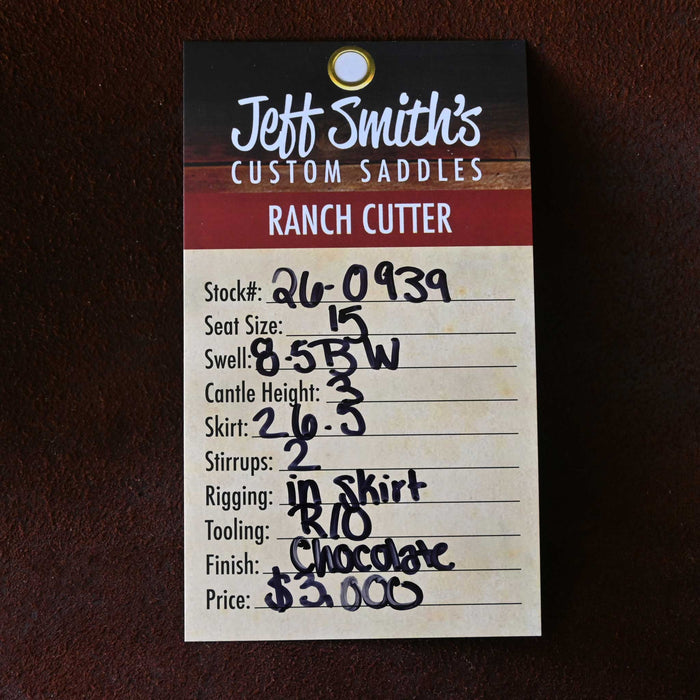 Jeff Smith's
CUSTOM SADDLES
RANCH CUTTER
Stock#: 26-0939
Seat Size: 15
Swell: 8.5BW
Cantle Height: 3
Skirt: 26.5
Stirrups: 2
Rigging: in skirt
Tooling: R/O
Finish: Chocolate
Price: $3,000